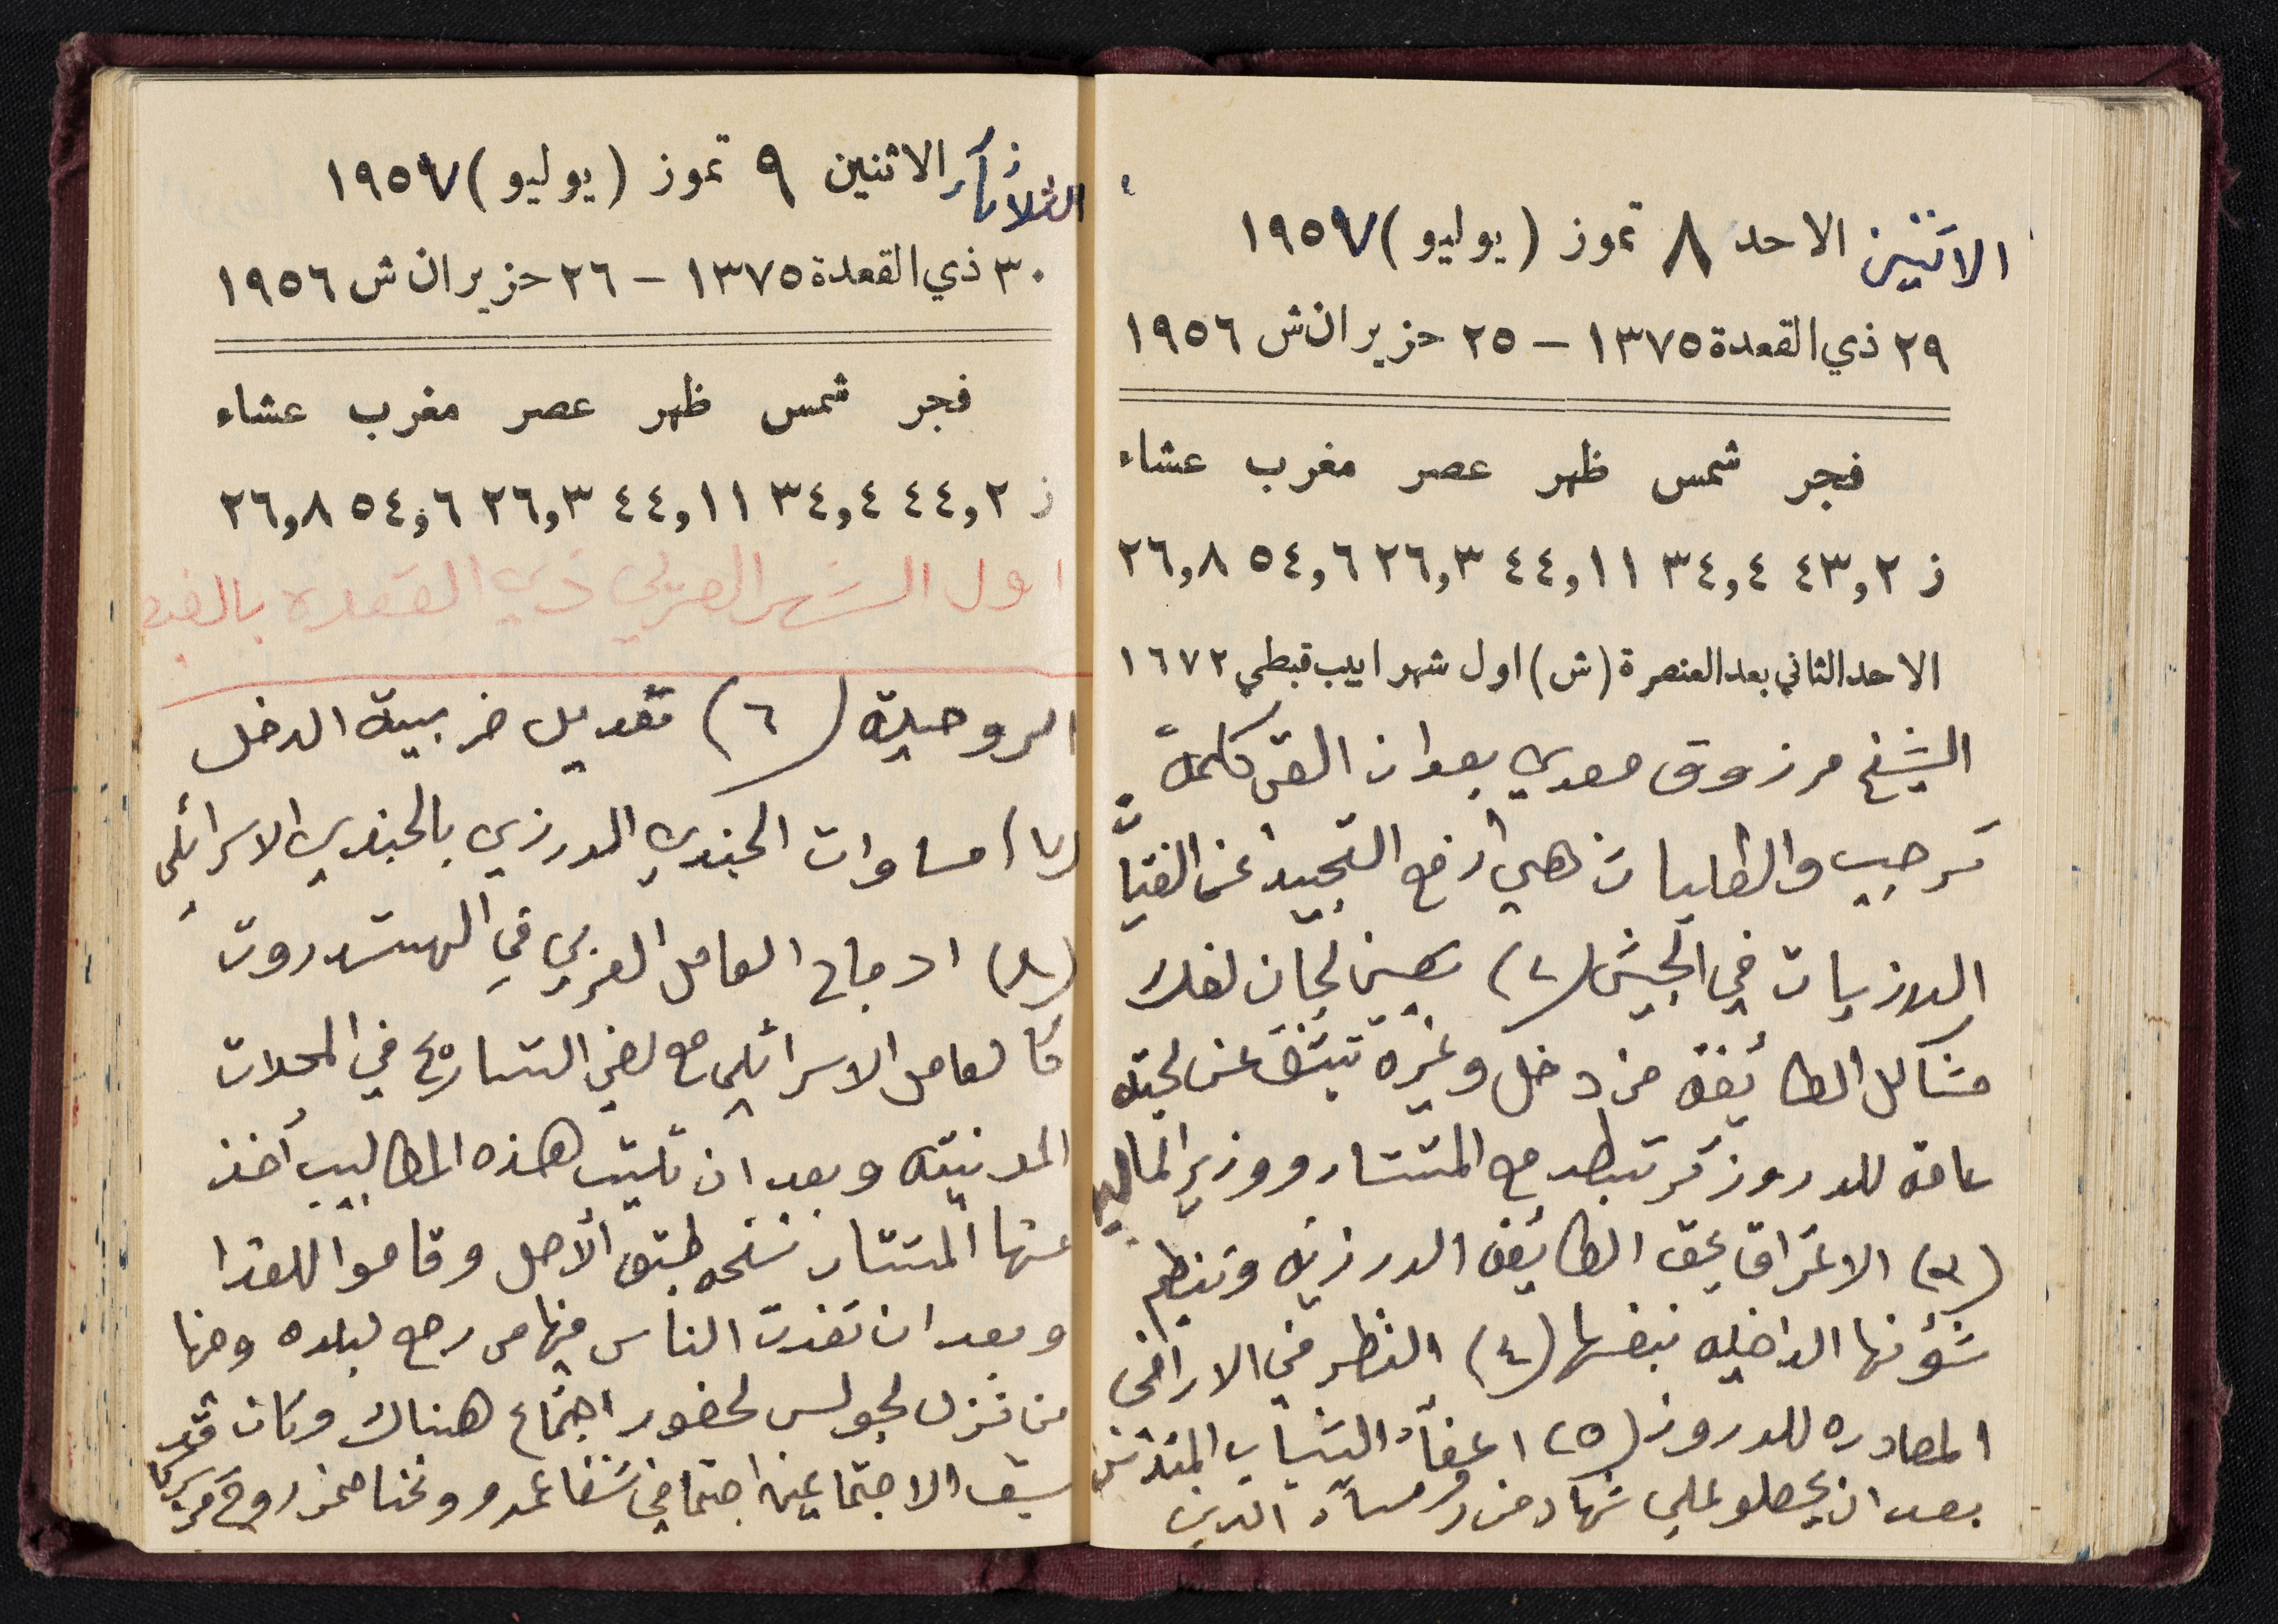 الاثنين الاحد ٨ تموز (يوليو) ١٩٥٧
٢٩ ذي القعدة ١٣٧٥ – ٢٥ حزيران ش ١٩٥٦
فجر شمس ظهر عصر مغرب عشاء
ز ٤٣,٢ ٣٤,٤ ٤٤,١١ ٢٦,٣ ٥٤,٦ ٢٦,٨
الاحد الثاني بعد العنصرة (ش) اول شهر ابيب قبطي ١٦٧٢
الشيخ مرزوق معدي بعد ان القى كلمة
ترحيب والطلبات هي أرفع التجييد عن الفتيات
الدرزيات في الجيش (٢) تعيين لجان لفك
مشاكل الطائفة من دخل وغيره تبثق عن لجنة
عامة للدروز ترتبط مع المتشار ووزير المالية
(٣) الاعتراق بحق الطائفة الدرزية وتنظيم
شؤنها الداخلية بنفسها (٤) النظر في الاراضي
المصادره للدروز (٥) اعفاء الشباب المتدينين
بعد ان يحصلو على شهاد من رؤساء الدين
الثلاثاء الاثنين ٩ تموز (يوليو) ١٩٥٧
٣٠ ذي القعدة ١٣٧٥ – ٢٦ حزيران ش ١٩٥٦
فجر شمس ظهر عصر مغرب عشاء
ز ٤٤,٢ ٣٤,٤ ٤٤,١١ ٢٦,٣ ٥٤,٦ ٢٦,٨
اول الشهر العربي ذي القعده
الروحية (٦) تعديل ضريبة الدخل
(٧) مساوات الجندي الدرزي بالجندي الاسرائلي
(٨) ادماج العامل العربي في الهستدروت
كالعامل الاسرائلي مع لغي التساريح في المحلات
المدنية وبعد ان تليت هذه المطاليب أخذ
عنها المتشار نسخه طبق الأصل وقاموا للغدا
وبعد ان تغدت الناس منها من رجع لبلده ومنها
من نزل لجولس لحضور اجتماع هناك وكان قد
سبق الاجتماعين اجتما في شفاعمرو ونحنا من